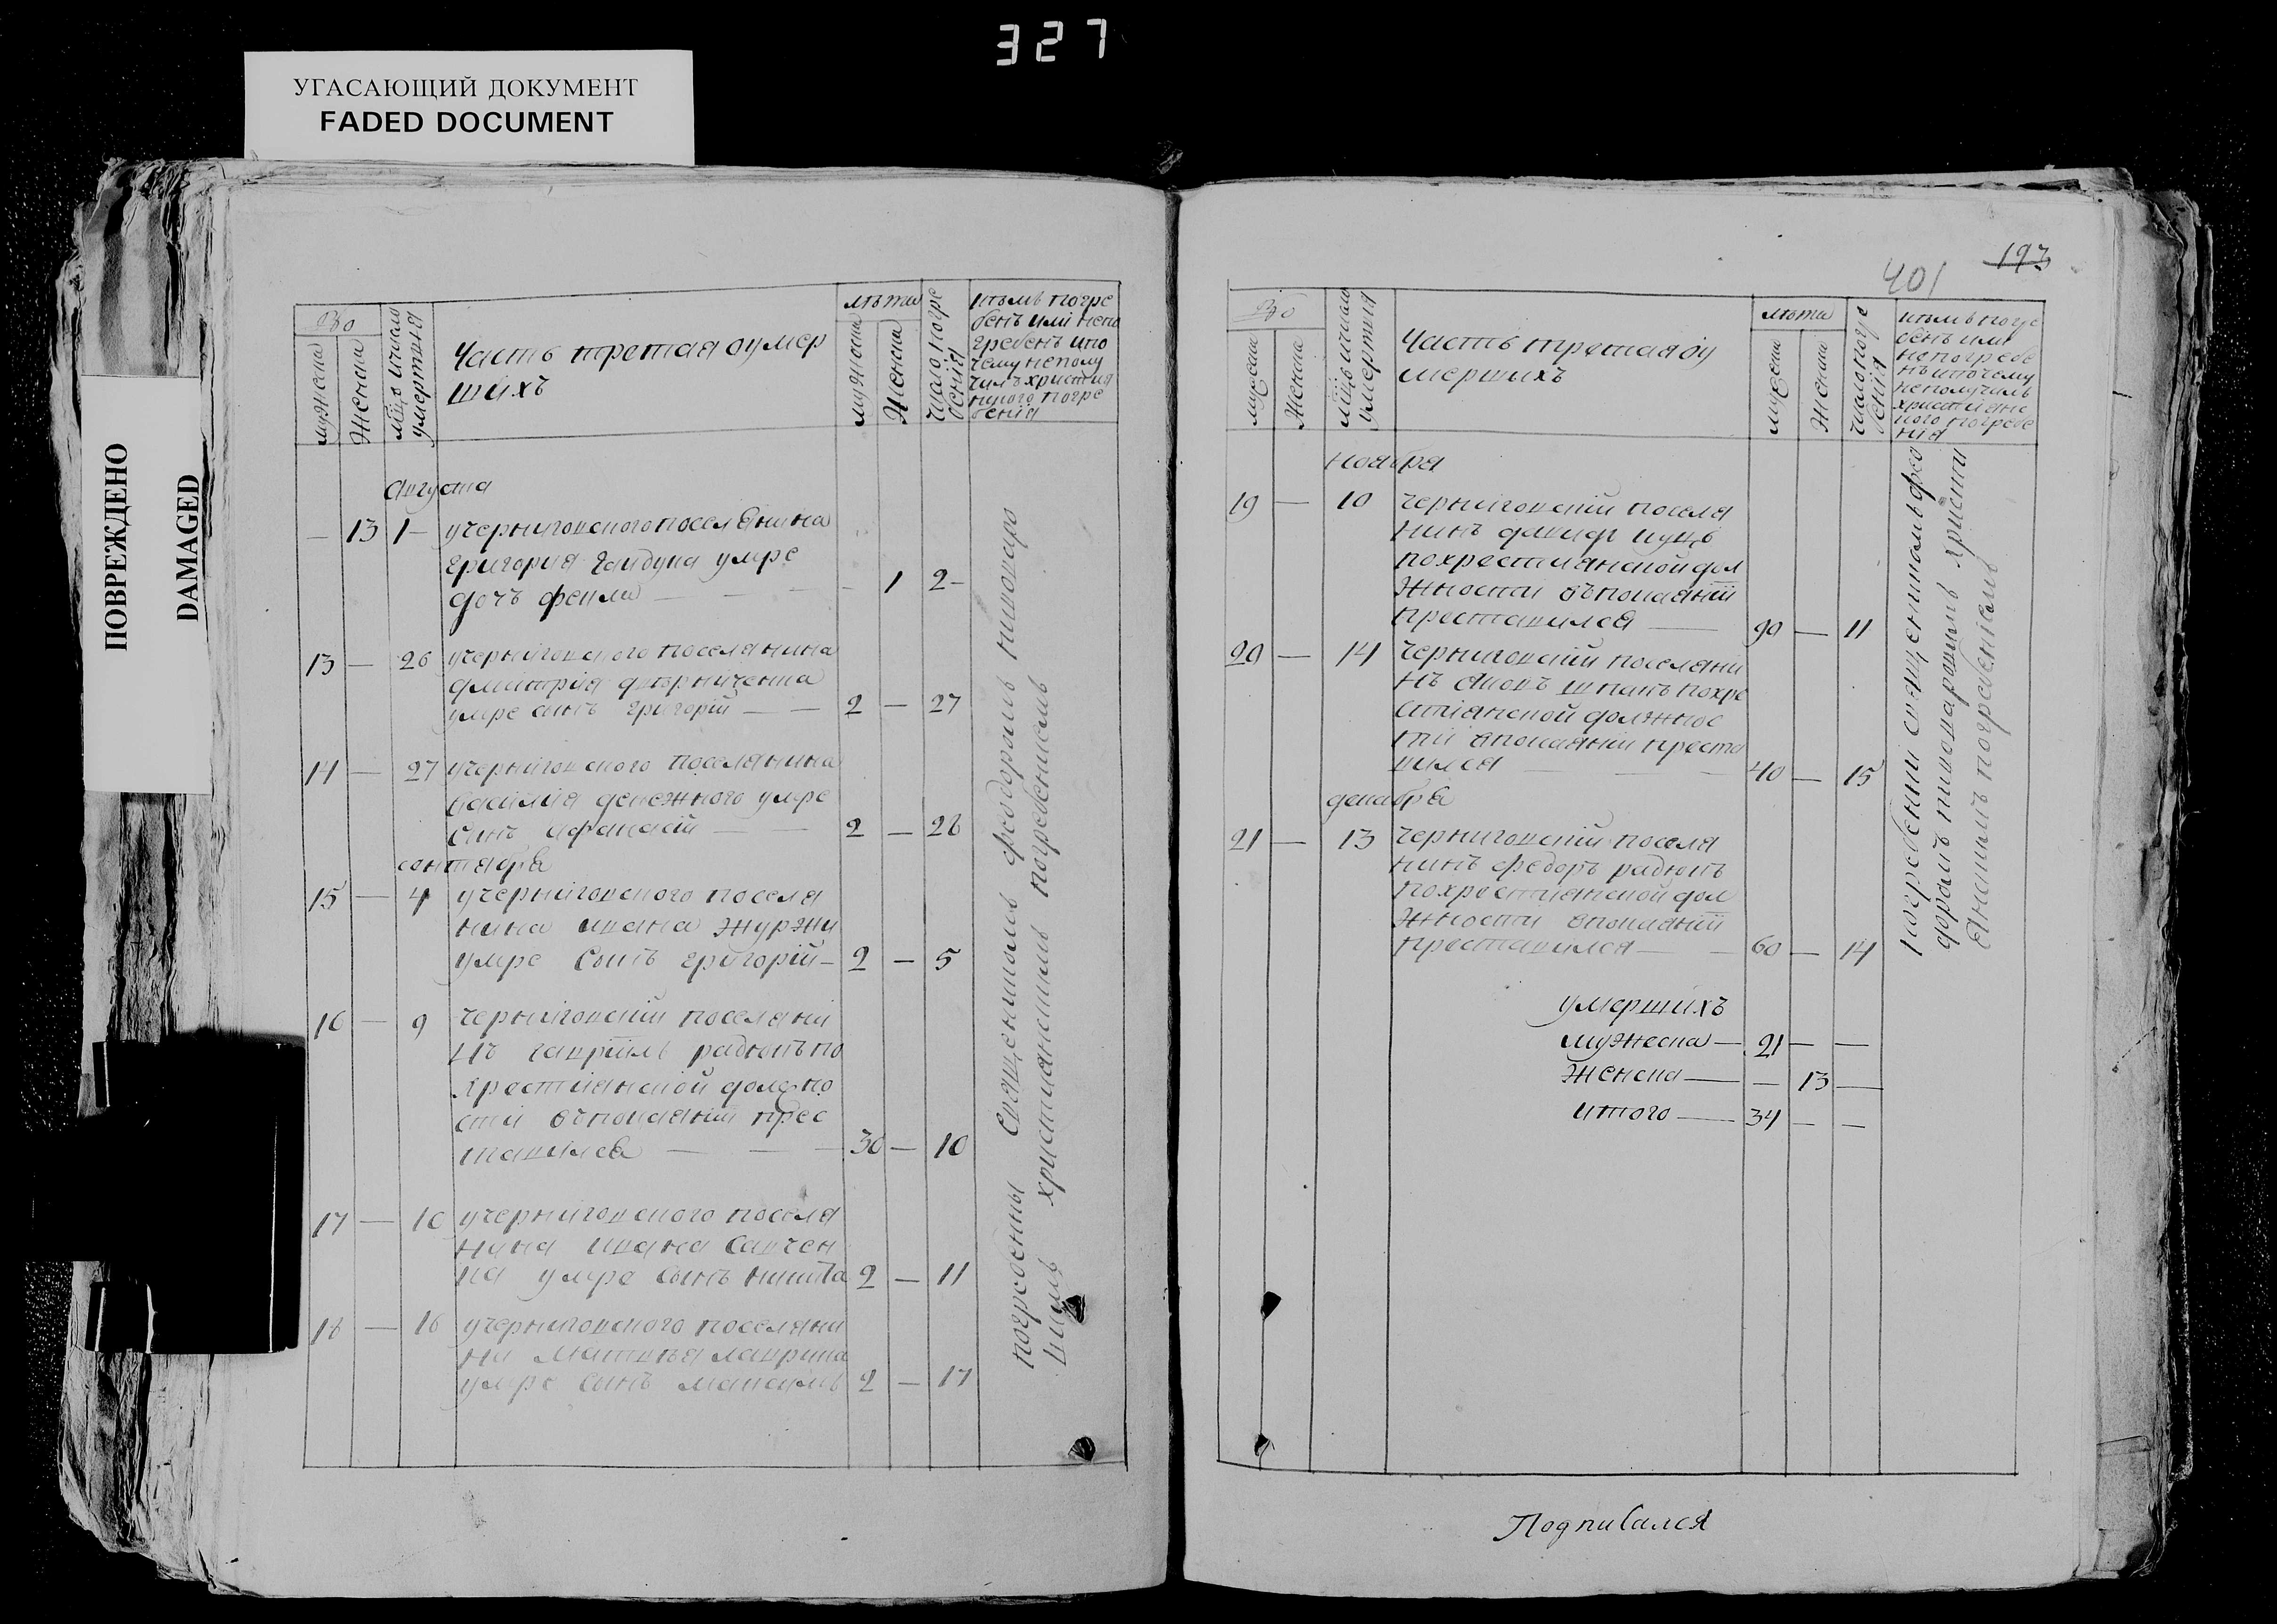 327
УГАСАЮЩИЙ ДОКУМЕНТ
FADED DOCUMENT
ПОВРЕЖДЕНО
DAMAGED
Во
мужеска
женска
мцъ ичисло
умертия
Часть третая оумер
шихъ
лѣта
мужеска
женска
число погре
бения
кѣмъ погре
бенъ или непо
гребенъ ипо
чему неполу
чилъ христия
нского погре
бения
августа
13 1 учерниговского поселянина
григория гайдука умре
дочъ феклa 1 2
13 26 учерниговского поселянина
дмитрия
умре синъ григорий 2 27
14 27 учерниговского поселянина
василия денежного умре
синъ афанасий 2 28
сентября
15 4 учерниговского поселя
нина ивана журжи
умре Сынъ григорий 2 5
16 9 черниговский поселяни
нъ гавриилъ радионъ по
хрестиянской должно
сти въпокаянии прес
тавился 30 10
17 10 учерниговского поселя
нина ивана савчен
ка умре сынъ никита 2 11
18 16 учерниговского поселяни
на матвѣя лаврика
умре синъ максимъ 2 17
погребенны Священникомъ федоромъ тишкаромъ
християнскимъ погребениемъ
401
193
Во
мужеска
женска
мцъ ичисло
умертия
Часть третая оу
мершихъ
лѣта
мужеска
женска
число погре
бения
кѣмъ погре
бенъ или
непогребе
нъ ипочему
неполучилъ
християнс
кого погребе
ния
ноября
19 10 черниговский поселя
нинъ
похрестиянской дол
жности въпокаянии
преставился 90 11
20 14 черниговский поселяни
нъ яковъ шпакъ похре
стиянской должнос
ти впокаянии преста
вился 40 15
декабря
21 13 черниговский поселя
нинъ федоръ радионъ
похрестиянской дол
жности впокаянии
преставился 60 14
погребении священникомъ фео
доромъ христи
янскимъ погребениемъ
умершихъ
мужеска 21
женска 13
итого 34
Подписался